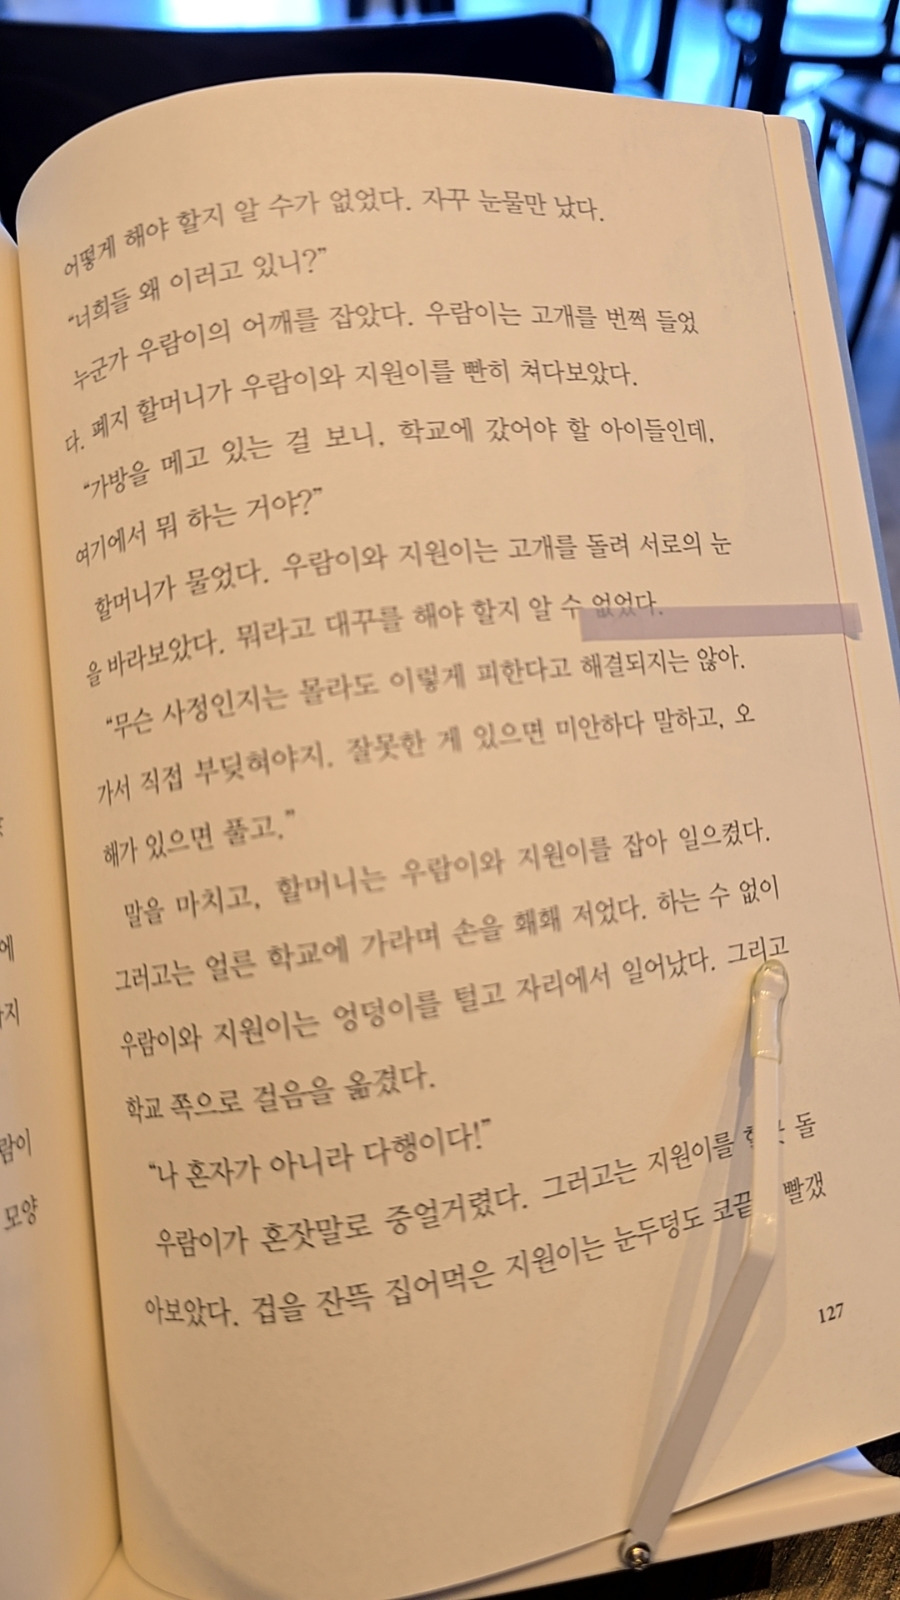 어떻게 해야 할지 알 수가 없었다. 자꾸 눈물만 났다.
“너희들 왜 이러고 있니?”
누군가 우람이의 어깨를 잡았다. 우람이는 고개를 번쩍 들었
다. 폐지 할머니가 우람이와 지원이를 빤히 쳐다보았다.
“가방을 메고 있는 걸 보니, 학교에 갔어야 할 아이들인데,
여기에서 뭐 하는 거야?”
할머니가 물었다. 우람이와 지원이는 고개를 돌려 서로의 눈
을 바라보았다. 뭐라고 대꾸를 해야 할지 알 수 없었다.
“무슨 사정인지는 몰라도 이렇게 피한다고 해결되지는 않아.
가서 직접 부딪혀야지. 잘못한 게 있으면 미안하다 말하고, 오
해가 있으면 풀고.”
말을 마치고, 할머니는 우람이와 지원이를 잡아 일으켰다.
그러고는 얼른 학교에 가라며 손을 홰홰 저었다. 하는 수 없이
우람이와 지원이는 엉덩이를 털고 자리에서 일어났다. 그리고
학교 쪽으로 걸음을 옮겼다.
“나 혼자가 아니라 다행이다!”
우람이가 혼잣말로 중얼거렸다. 그러고는 지원이를 돌
아보았다. 겁을 잔뜩 집어먹은 지원이는 눈두덩도 코끝 빨갰
127
에
지
람이
모양